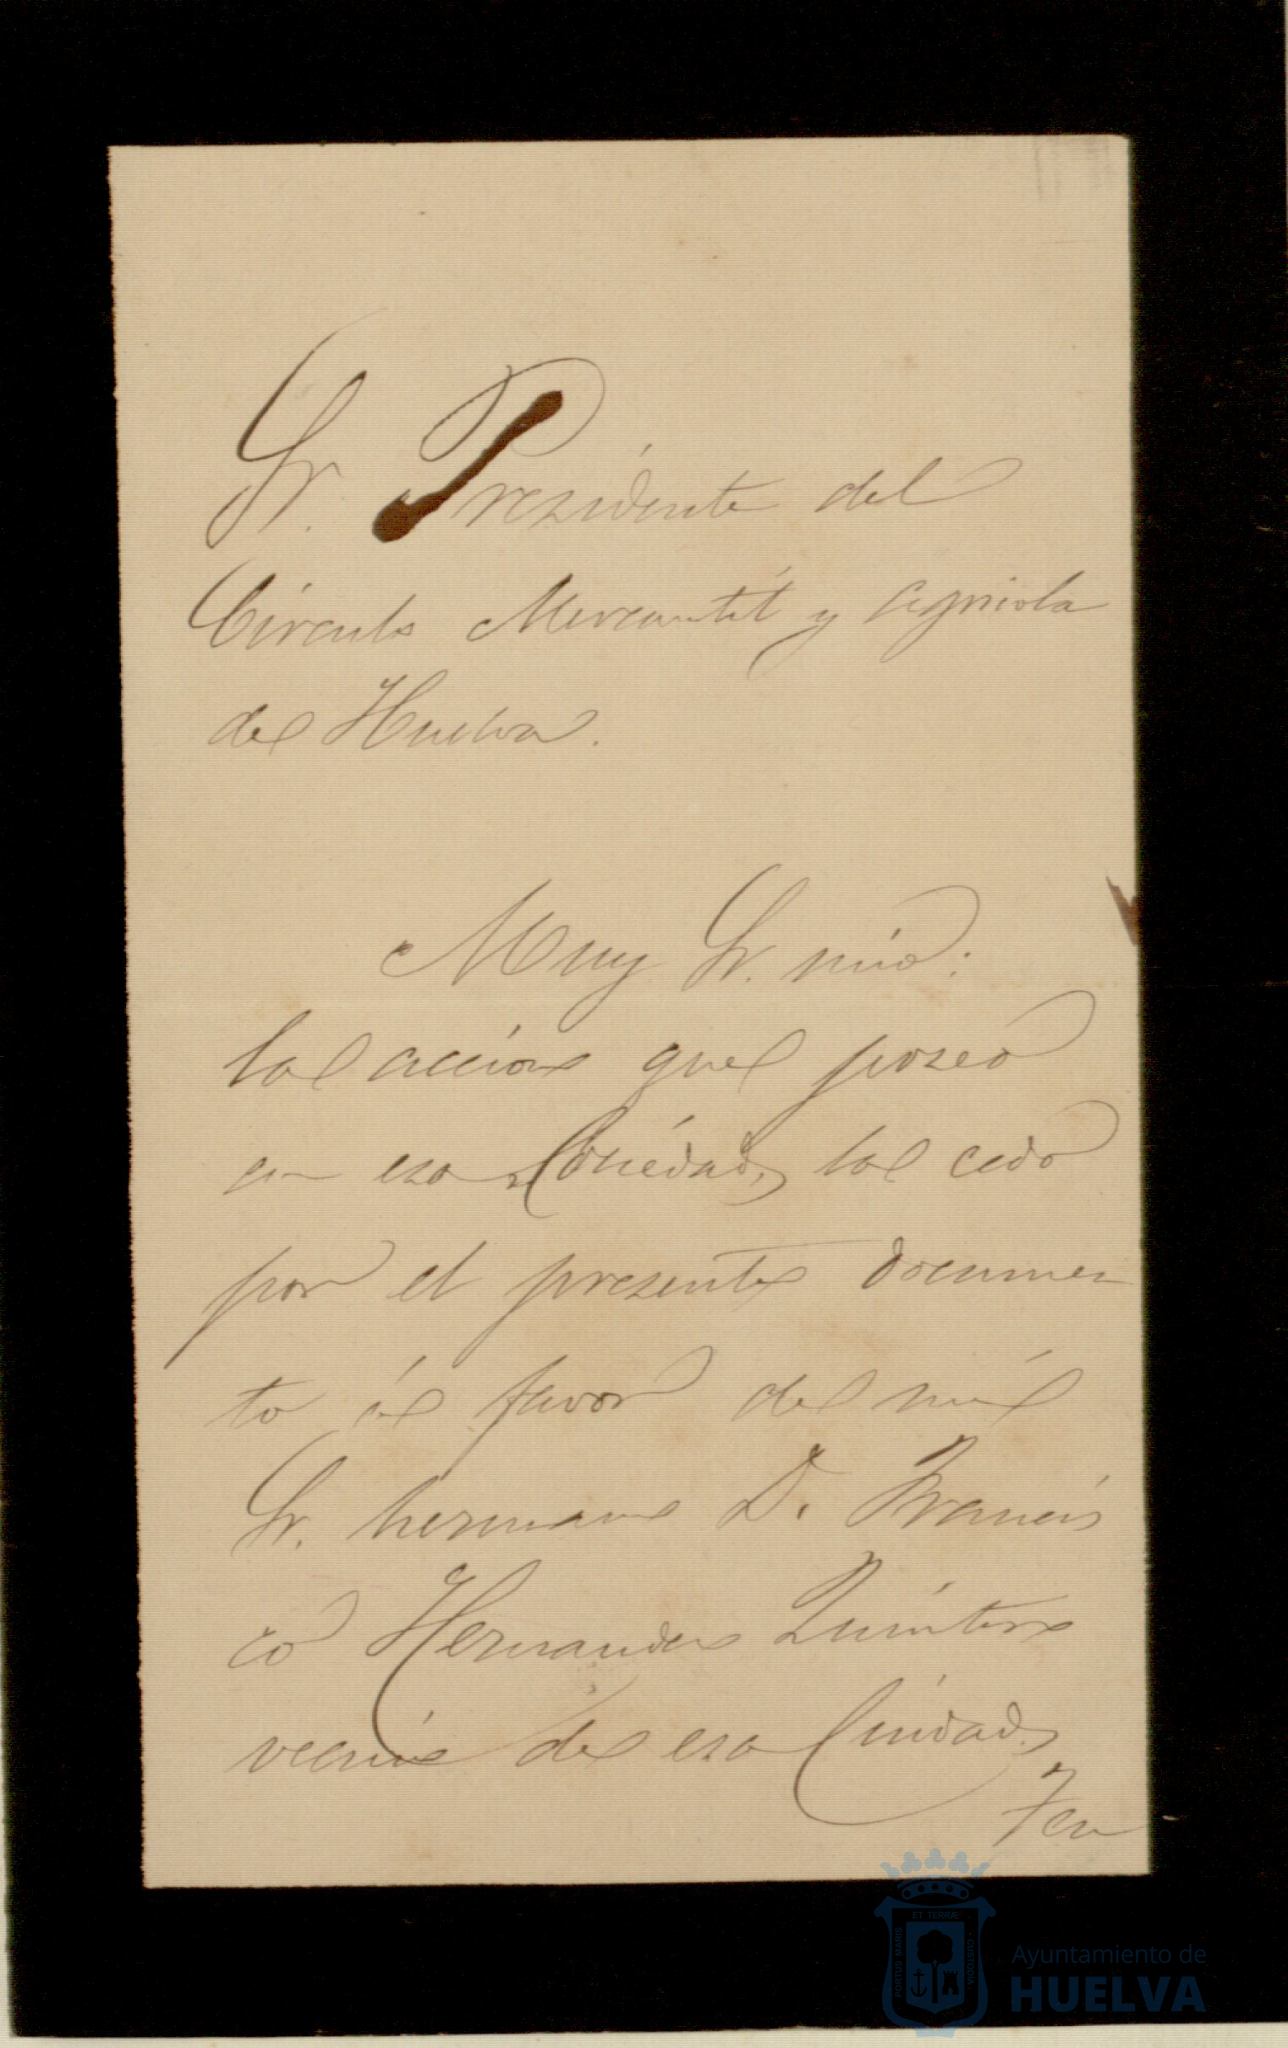 Sr. Presidente del
Círculo Mercantil y Agricola
de Huelva.
Muy Sr. mío:
la acción que poseo
en esa Sociedad, la cedo
por el presente documen
to á favor de mi
Sr. hermano D. Francis
co Hernandez Quintero
vecino de esa Ciudad,
ET TERRÆ
PORTUS MARIS
CUSTODIA
Ayuntamiento de
HUELVA